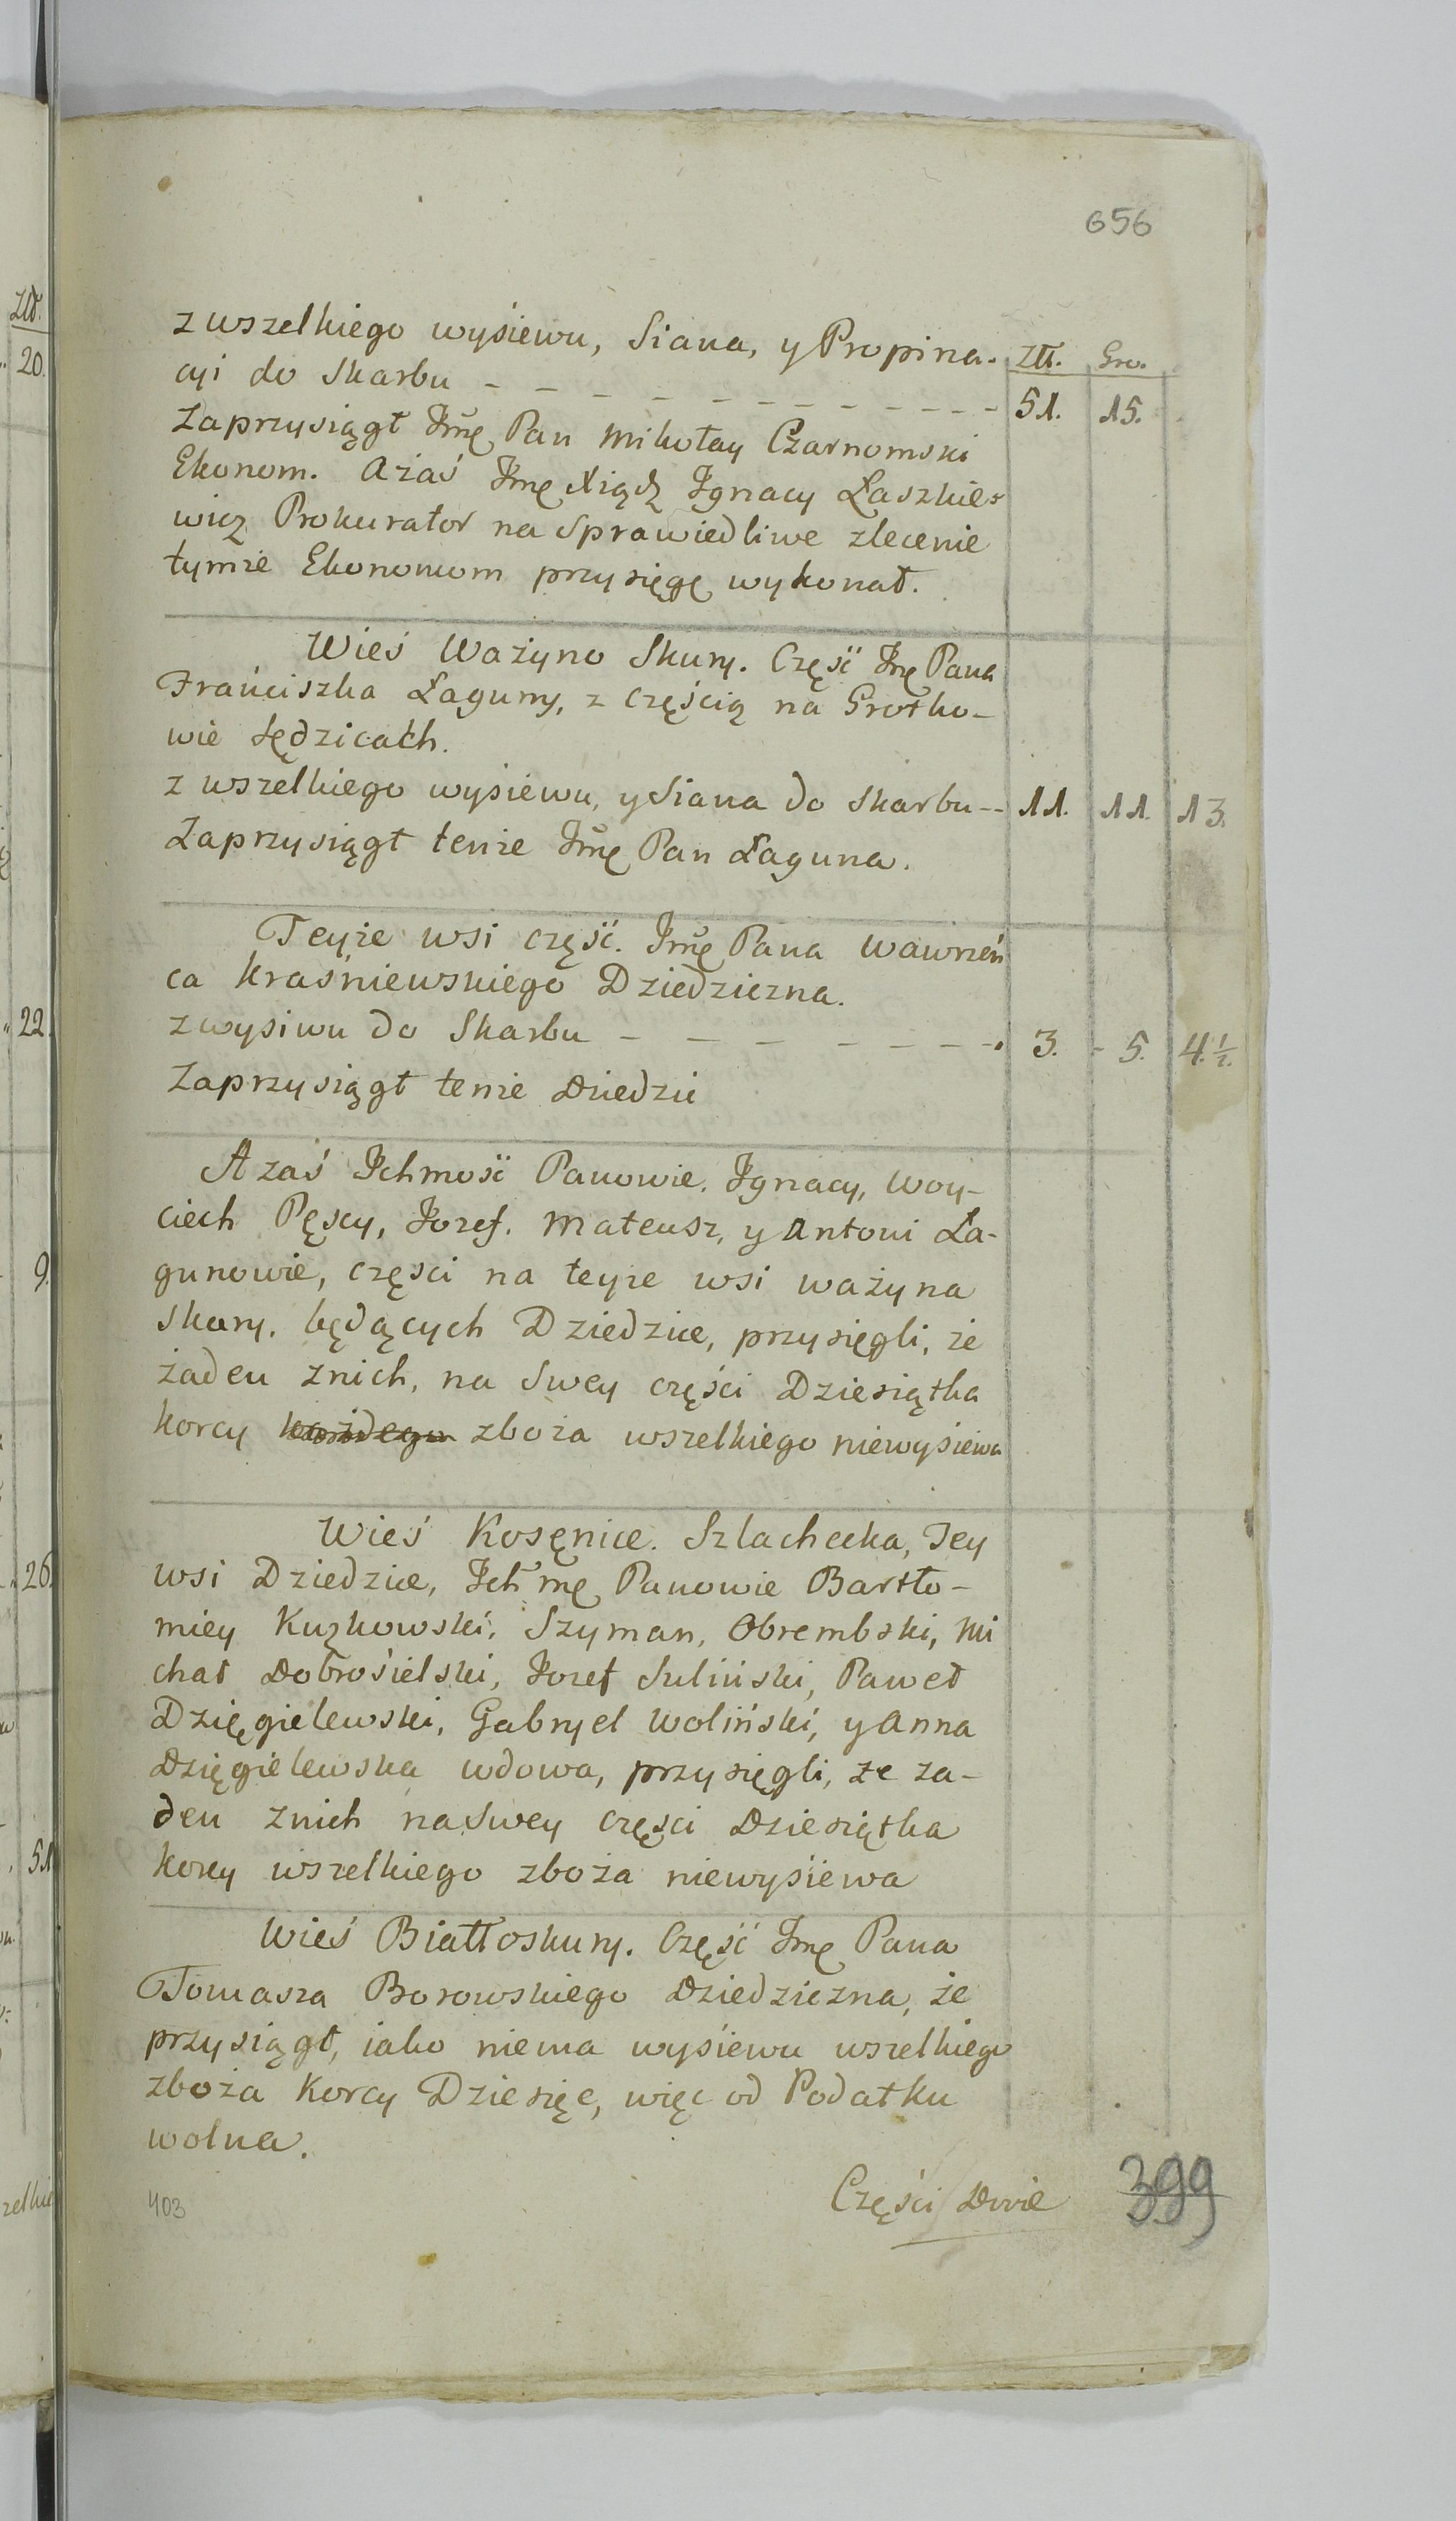 656
z wszelkiego wysiewu, Siana, y Propina- Złł. Gro.
cyi do Skarbu - - - - - - - - - - - 51. 15.
Zaprzysiągł Jmę Pan Mikołay Czarnomski
Ekonom. Azaś Jmę Xiądz Jgnacy Łaszkie-
wicz Prokurator na Sprawiedliwe zlecenie
tymże Ekonomom przysięgę wykonał.
Wieś Ważyno Skury. Część Jmę Pana
Franciszka Łaguny, z częścią na Grotko-
wie Sędzicach.
z wszelkiego wysiewu, y Siana do Skarbu -- 11. 11. 13.
Zaprzysiągł tenże Jmę Pan Łaguna.
Teyże wsi część. Jmę Pana Wawrzeń
ca Kraśniewskiego Dziedziczna.
z wysiwu do Skarbu - - - - - - - - 3. - 5. 4.½.
Zaprzysiągł tenże Dziedzic
A zaś Jchmość Panowie. Jgnacy, Woy-
ciech Pęscy, Jozef. Mateusz, y Antoni Ła-
gunowie, częsci na teyże wsi ważyna
Skury. będących Dziedzice, przysięgli, że
żaden znich, na Swey części Dziesiątka
korcy każdego zboża wszelkiego niewysiewa
Wieś Kosęnice. Szlachecka, Tey
wsi Dziedzice, Jch mę Panowie Bartło-
miey Kuzkowski, Szyman, Obrembski, Mi
chał Dobrosielski, Jozef Suliński, Paweł
Dzięgielewski, Gabryel Woliński, y Anna
Dzięgielewska wdowa, przysięgli, że ża-
den znich na Swey częsci Dziesiątka
korcy wszelkiego zboża niewysiewa
Wieś Białłoskury. Część Jmę Pana
Tomasza Borowskiego Dziedziczna, że
przysiągł, iako niema wysiewu wszelkiego
zboża Korcy Dziesięc, więc od Podatku
wolna.
Części Dwie 399
403